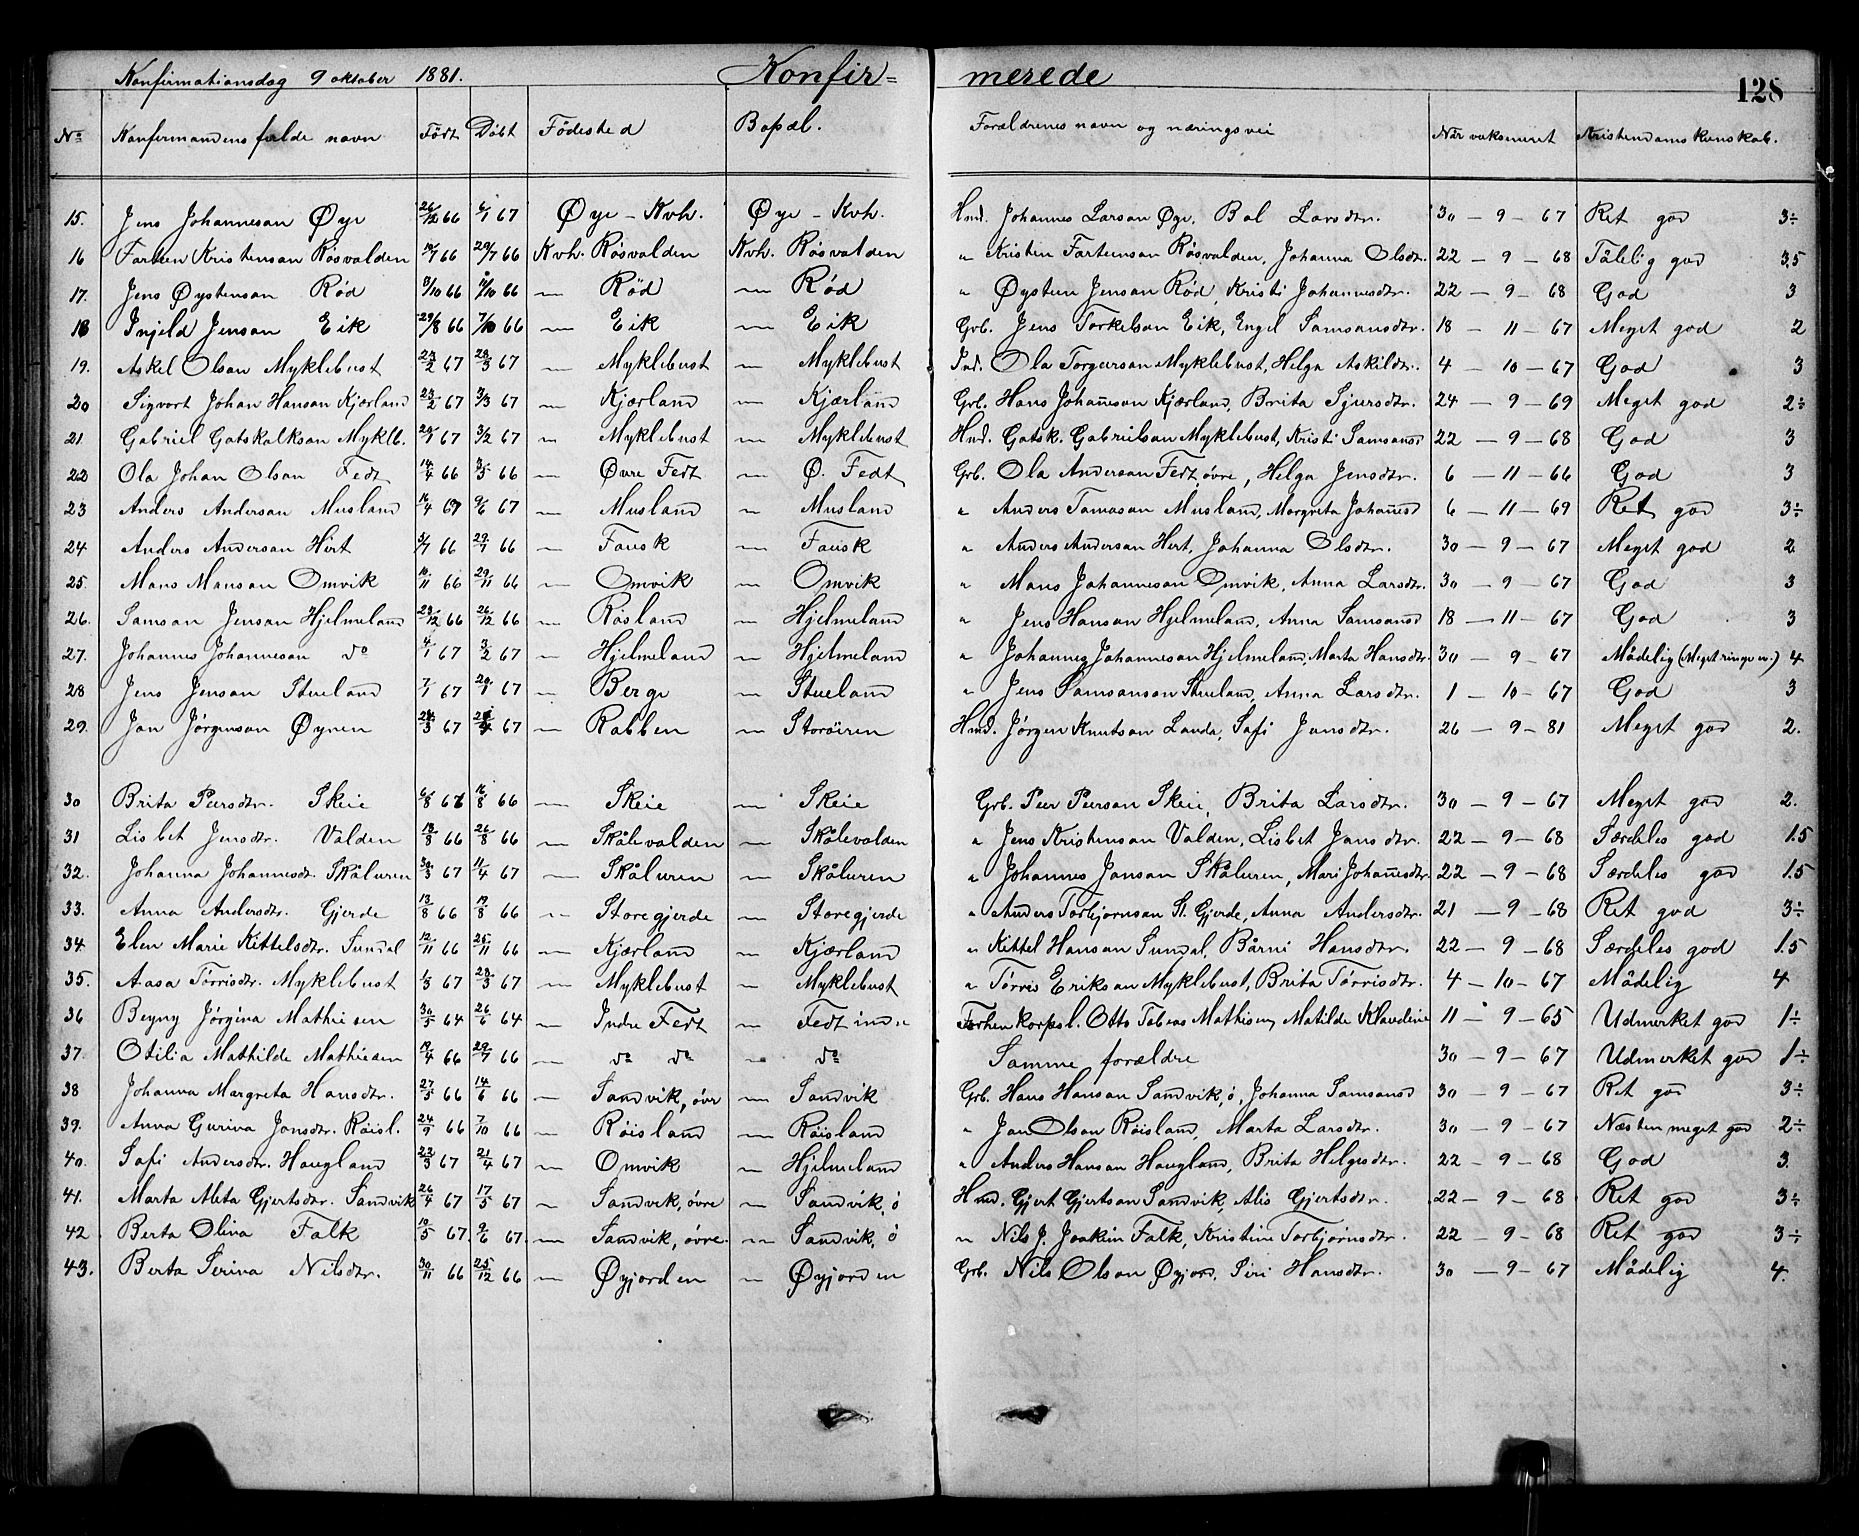 Konfirmationsdag 9 oktober 1881. Konfir= merede 128
No Konfirmandens fulde navn Født Døbt Fødested Bopæl. Forældrenes navn og næringsvei Når vaksineret Kristendomskunskab.
15. Jens Johanneson Øye 26/12 66 6/1 67 Øye - Kvh. Øye - Kvh. Hmd. Johannes Larson Øye, Bol Larsdtr. 30 - 9 - 67 Ret god 3÷
16 Fartein Kristenson Røsvalden 19/7 66 29/7 66 Kvh. Røsvalden Kvh. Røsvalden " Kristen Farteinson Røsvalden, Johanna Olsdtr. 22 - 9 - 68 Tålelig god 3.5
17. Jens Øystenson Rød /10 66 /10 66 — Rød — Rød " Øysten Jenson Rød, Kristi Johannesdtr. 22 - 9 - 68 God 3
18 Ingjeld Jenson Eik 29/8 66 7/10 66 — Eik — Eik Grb. Jens Torkelson Eik, Engel Samsonsdtr. 18 - 11 - 67 Meget god 2
19. Askel Olson Myklebust 22/2 67 /3 67 — Myklebust — Myklebust Ind. Ola Torgerson Myklebust, Helga Askildtr. 4 - 10 - 67 God 3
20 Sigvort Johan Hanson Kjærland 23/2 67 3/3 67 — Kjærland — Kjærland Grb. Hans Johaneson Kjærland, Brita Sjursdtr. 24 - 9 - 69 Meget god 2÷
21. Gabriel Gotskalkson Mykleb. 29/1 67 3/2 67 — Myklebust — Myklebust Hmd. Gotsk. Gabrielson Myklebust, Kristi Samsonsd 22 - 9 - 68 God 3
22 Ola Johan Olson Fedt 14/4 66 /5 66 — Øvre Fedt — Ø. Fedt Grb. Ola Anderson Fedt, øvre, Helga Jensdtr. 6 - 11 - 66 God 3
23 Anders Anderson Musland 16/4 67 9/6 67 — Musland — Musland " Anders Tomason Musland, Margreta Johanesd 6 - 11 - 69 Ret god 3÷
24. Anders Anderson Hirt 3/7 66 29/7 66 — Fausk — Fausk " Anders Anderson Hirt, Johanna Olsdtr. 30 - 9 - 67 Meget god 2
25. Mons Monson Omvik 10/11 66 29/11 66 — Omvik — Omvik " Mons Johanneson Omvik, Anna Larsdtr. 30 - 9 - 67 God 3
26. Samson Jenson Hjelmeland /12 66 26/12 66 — Røsland — Hjelmeland " Jens Hanson Hjelmeland, Anna Samsonsd 18 - 11 - 67 God 3
27. Johannes Johanneson do 4/1 67 3/2 67 — Hjelmeland — Hjelmeland " Johannes Johanneson Hjelmeland, Marta Hansdtr. 30 - 9 - 67 Mådelig (Meget ringe ev.) 4
28 Jens Jenson Stueland 7/1 67 29/1 67 — Berge — Stueland " Jens Samsonson Stueland, Anna Larsdtr. 1 - 10 - 67 God 3
29. Jon Jørgenson Øynen /3 67 67 — Rabben — Storøiren Hmd. Jørgen Knutson Landa, Sofi Jonsdtr. 26 - 9 - 81 Meget god 2.
30 Brita Peersdtr. Skeie 6/8 66 16/8 66 — Skeie — Skeie Grb. Peer Peerson Skeie, Brita Larsdtr. 30 - 9 - 67 Meget god 2.
31 Lisbet Jensdtr. Valden 13/8 66 26/8 66 — Skålevalden — Skålevalden " Jens Kristenson Valden, Lisbet Jonsdtr. 22 - 9 - 68 Særdeles god 1.5
32. Johanna Johannesdt. Skåluren 30/3 67 11/4 67 — Skåluren — Skåluren " Johannes Jonson Skåluren, Mari Johanesdtr 22 - 9 - 68 Særdeles god 1.5
33. Anna Andersdtr. Gjerde 13/8 66 19/8 66 — Storegjerde — Storegjerde " Anders Torbjørnson St. Gjerde, Anna Andersdtr. 21 - 9 - 68 Ret god 3÷
34. Elen Marie Kittelsdtr. Sundal 12/11 66 25/11 66 — Kjærland — Kjærland " Kittel Hanson Sundal, Bårni Hansdtr. 22 - 9 - 68 Særdeles god 1.5
35. Aasa Tørrisdtr. Myklebust 1/3 67 /3 67 — Myklebust — Myklebust " Tørris Erikson Myklebust, Brita Tørrisdtr. 4 - 10 - 67 Mådelig 4
36 Beyny Jørgina Mathiesen 30/5 64 26/6 64 — Indre Fedt — Fedt ind. Forhen Korpsl. Otto Tobias Mathisen, Matilde Klavdine 11 - 9 - 65 Udmerket god 1÷
37. Otilia Mathilde Mathiesen 19/4 66 29/7 66 — do do — do Samme forældre 30 - 9 - 67 Udmerket god 1÷
38 Johanna Margreta Hansdtr. 27/5 66 14/6 66 — Sandvik, øvr — Sandvik Grb. Hans Hanson Sandvik, ø, Johanna Samsonsd 30 - 9 - 67 Ret god 3÷
39. Anna Gurina Jonsdtr. Røisl. 24/9 66 7/10 66 — Røisland — Røisland " Jon Olson Røisland, Marta Larsdtr. 30 - 9 - 67 Næsten meget god 2÷
40. Sofi Andersdtr. Haugland 22/3 67 21/4 67 — Omvik — Hjelmeland " Anders Hanson Haugland, Brita Helgesdtr. 22 - 9 - 68 God 3.
41. Marta Meta Gjertsdtr. Sandvik 26/4 67 17/5 67 — Sandvik, øvre — Sandvik, ø Hmd. Gjert Gjertson Sandvik, Alis Gjertsdtr. 22 - 9 - 68 Ret god 3÷
42 Berta Olina Falk 19/5 67 9/6 67. — Sandvik, øvre. — Sandvik, ø " Nils J. Joakim Falk, Kristine Torbjørnsdtr. 22 - 9 - 68 Ret god 3÷
43. Berta Serina Nilsdtr. 30/11 66 25/12 66 — Øyjorden — Øyjorden Grb. Nils Olson Øyjord, Siri Hansdtr. 30 - 9 - 67 Mådelig 4.